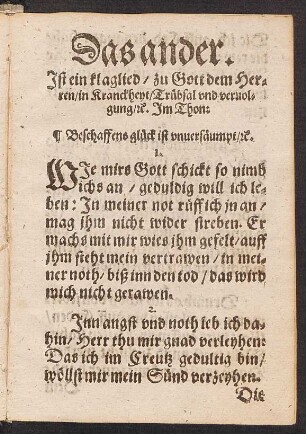 Das ander.
Ist ein klaglied / zu Gott dem Her-
ren / in Kranckheyt / Trübsal vnd veruol-
gung / ꝛc. Im Thon:
¶ Beschaffens glück ist vnuersäumpt / ꝛc.
1.
WIe mirs Gott schickt so nimb
ichs an / geduldig will ich le-
ben: In meiner not rüff ich jn an /
mag jhm nicht wider streben. Er
machs mit mir wies jhm gefelt / auff
jhm steht mein vertrawen / in mei-
ner noth / biß inn den tod / das wird
mich nicht gerawen.
2.
Inn angst vnd noth leb ich da-
hin / Herr thu mir gnad verleyhen:
Das ich im Creutz gedultig bin /
wöllst mir mein Sünd verzeyhen.
Die